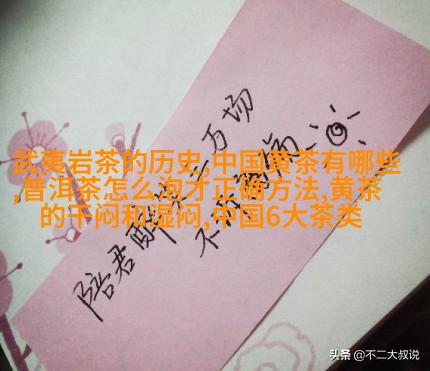 武夷岩茶的历史,中国黄茶有哪些
,普洱茶怎么泡才正确方法,黄茶
的干闷和湿闷,中国6大茶类
陪君醉 万场
不
头条 @不二大叔说